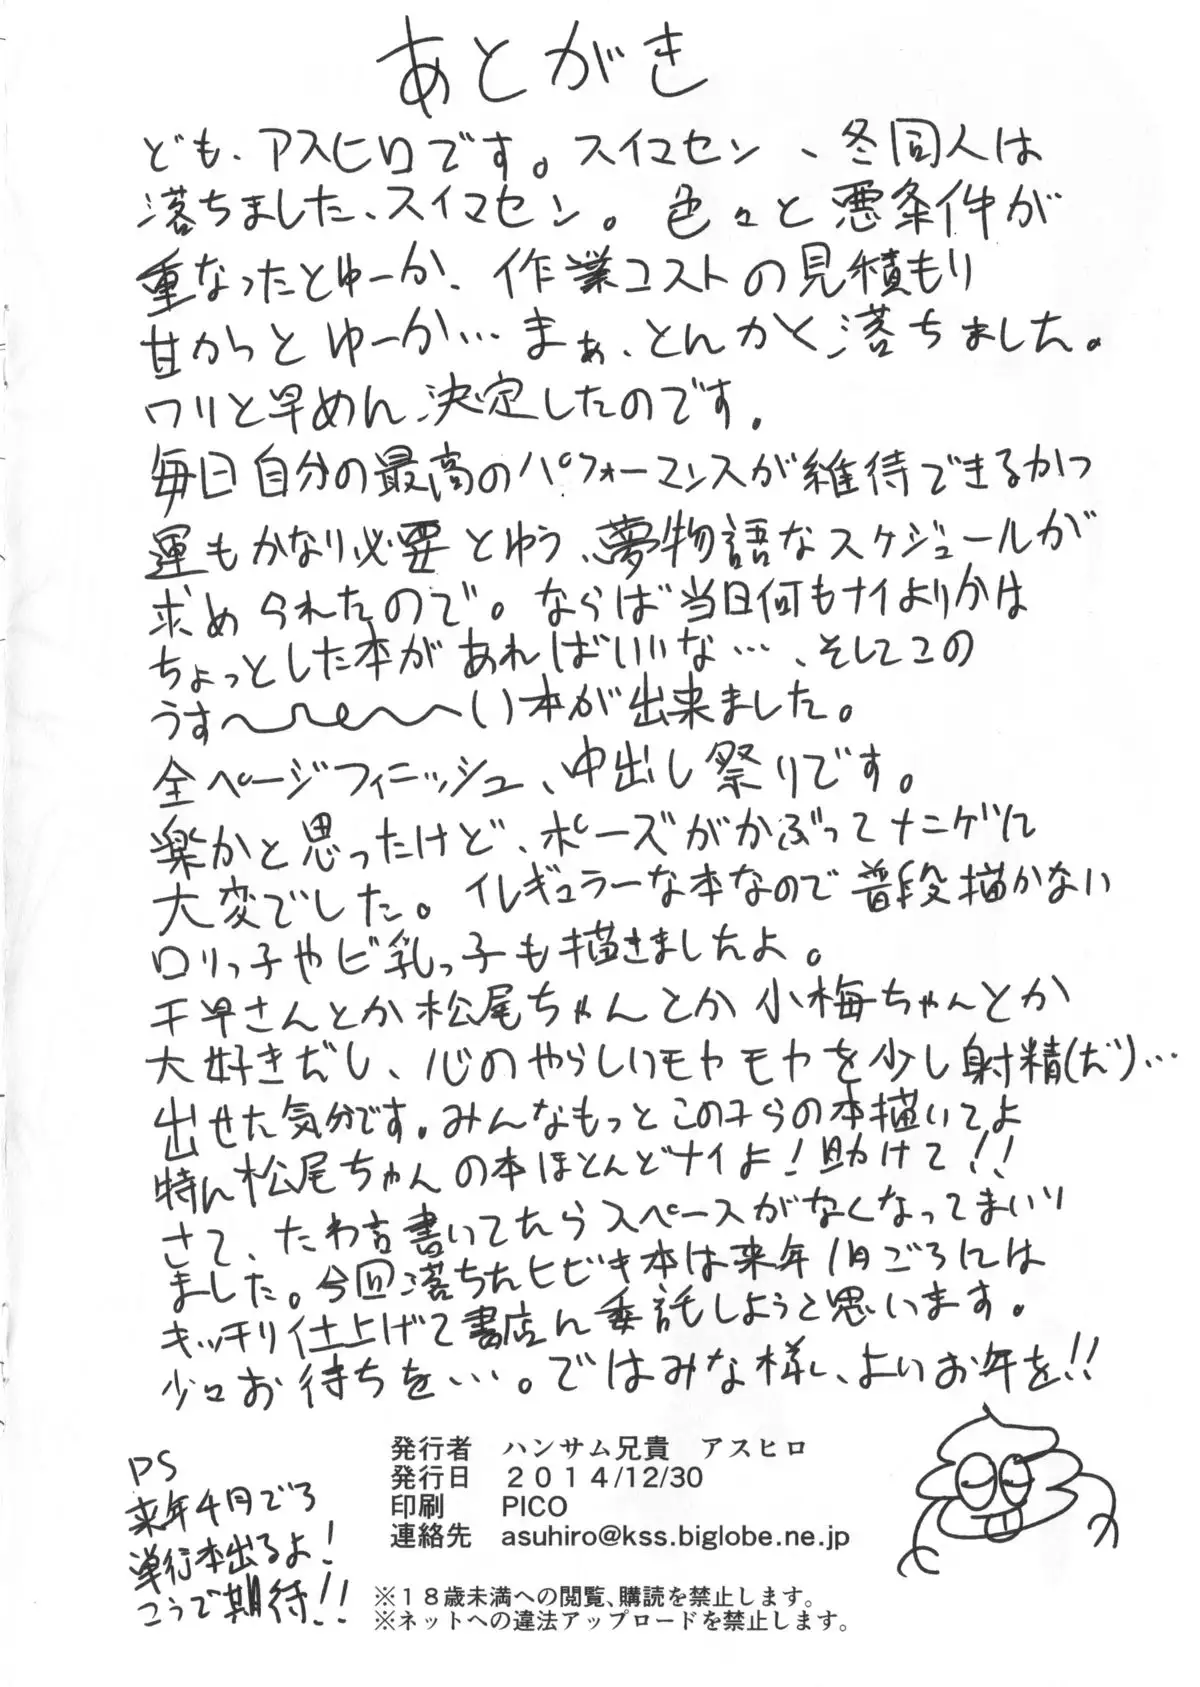 あとがき
ども、アスヒロです。スイマセン、冬同人は
落ちました、スイマセン。色々と悪条件が
重なったとゆーか、作業コストの見積もり
甘かっとゆーか…まぁ、とんかく落ちました。
ワリと早めん決定したのです。
毎日自分の最高のパフォーマンスが維持できるかつ
運もかなり必要とゆう、夢物語なスケジュールが
求められたので。ならば当日何もナイよりかは
ちょっとした本があればいいな…、そしてこの
うす〜〜〜い本が出来ました。
全ページフィニッシュ、中出し祭りです。
楽かと思ったけど、ポーズがかぶってナニゲに
大変でした。イレギュラーな本なので普段描かない
ロリっ子やビ乳っ子も描きましたよ。
千早さんとか松尾ちゃんとか小梅ちゃんとか
大好きだし、心のやらしいモヤモヤを少し射精(だ)…
出せた気分です。みんなもっとこの子らの本描いてよ
特ん松尾ちゃんの本ほとんどナイよ!助けて!!
さて、たわ言書いてたらスペースがなくなってまいり
ました。今回落ちたヒビキ本は来年1月ごろには
キッチリ仕上げて書店ん委託しようと思います。
少々お待ちを…。ではみな様し、よいお年を!!
発行者 ハンサム兄貴 アスヒロ
発行日 2014/12/30
印刷 PICO
連絡先 asuhiro@kss.biglobe.ne.jp
※18歳未満への閲覧、購読を禁止します。
※ネットへの違法アップロードを禁止します。
PS
来年4月ごろ
単行本出るよ!
こうご期待!!